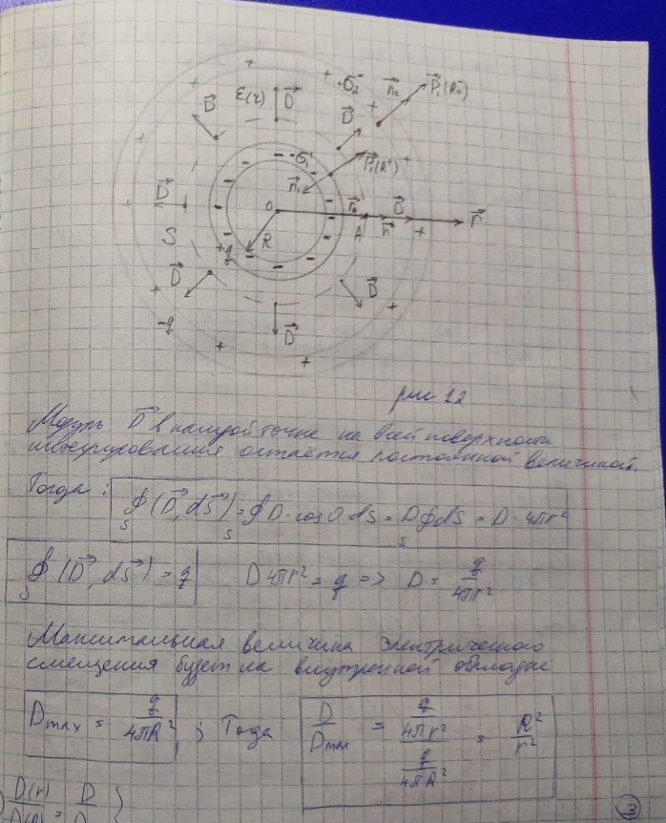 ε(r)
D⃗
D⃗
D⃗
+σ₂'
n⃗₂
P⃗₁(R₀)
-σ₁'
P⃗₁(R⁺)
n⃗₁
D⃗
S
O
R
+q
A
n⃗
D⃗
r⃗
D⃗
D⃗
D⃗
-q
рис 1.2
Модуль D⃗ в каждой точке на всей поверхности
интегрирования остаётся постоянной величиной.
Тогда: ∮ₛ (D⃗, dS⃗) = ∮ₛ D · cos 0 dS = D ∮ₛ dS = D · 4πr²
∮ₛ (D⃗, dS⃗) = q D 4πr² = q => D = q/4πr²
Максимальная величина электрического
смещения будет на внутренней обкладке
Dmax = q/4πR² ; Тогда D/Dmax = (q/4πr²)/(q/4πR²) = R²/r²
D(r)/D(R) = D/D
3